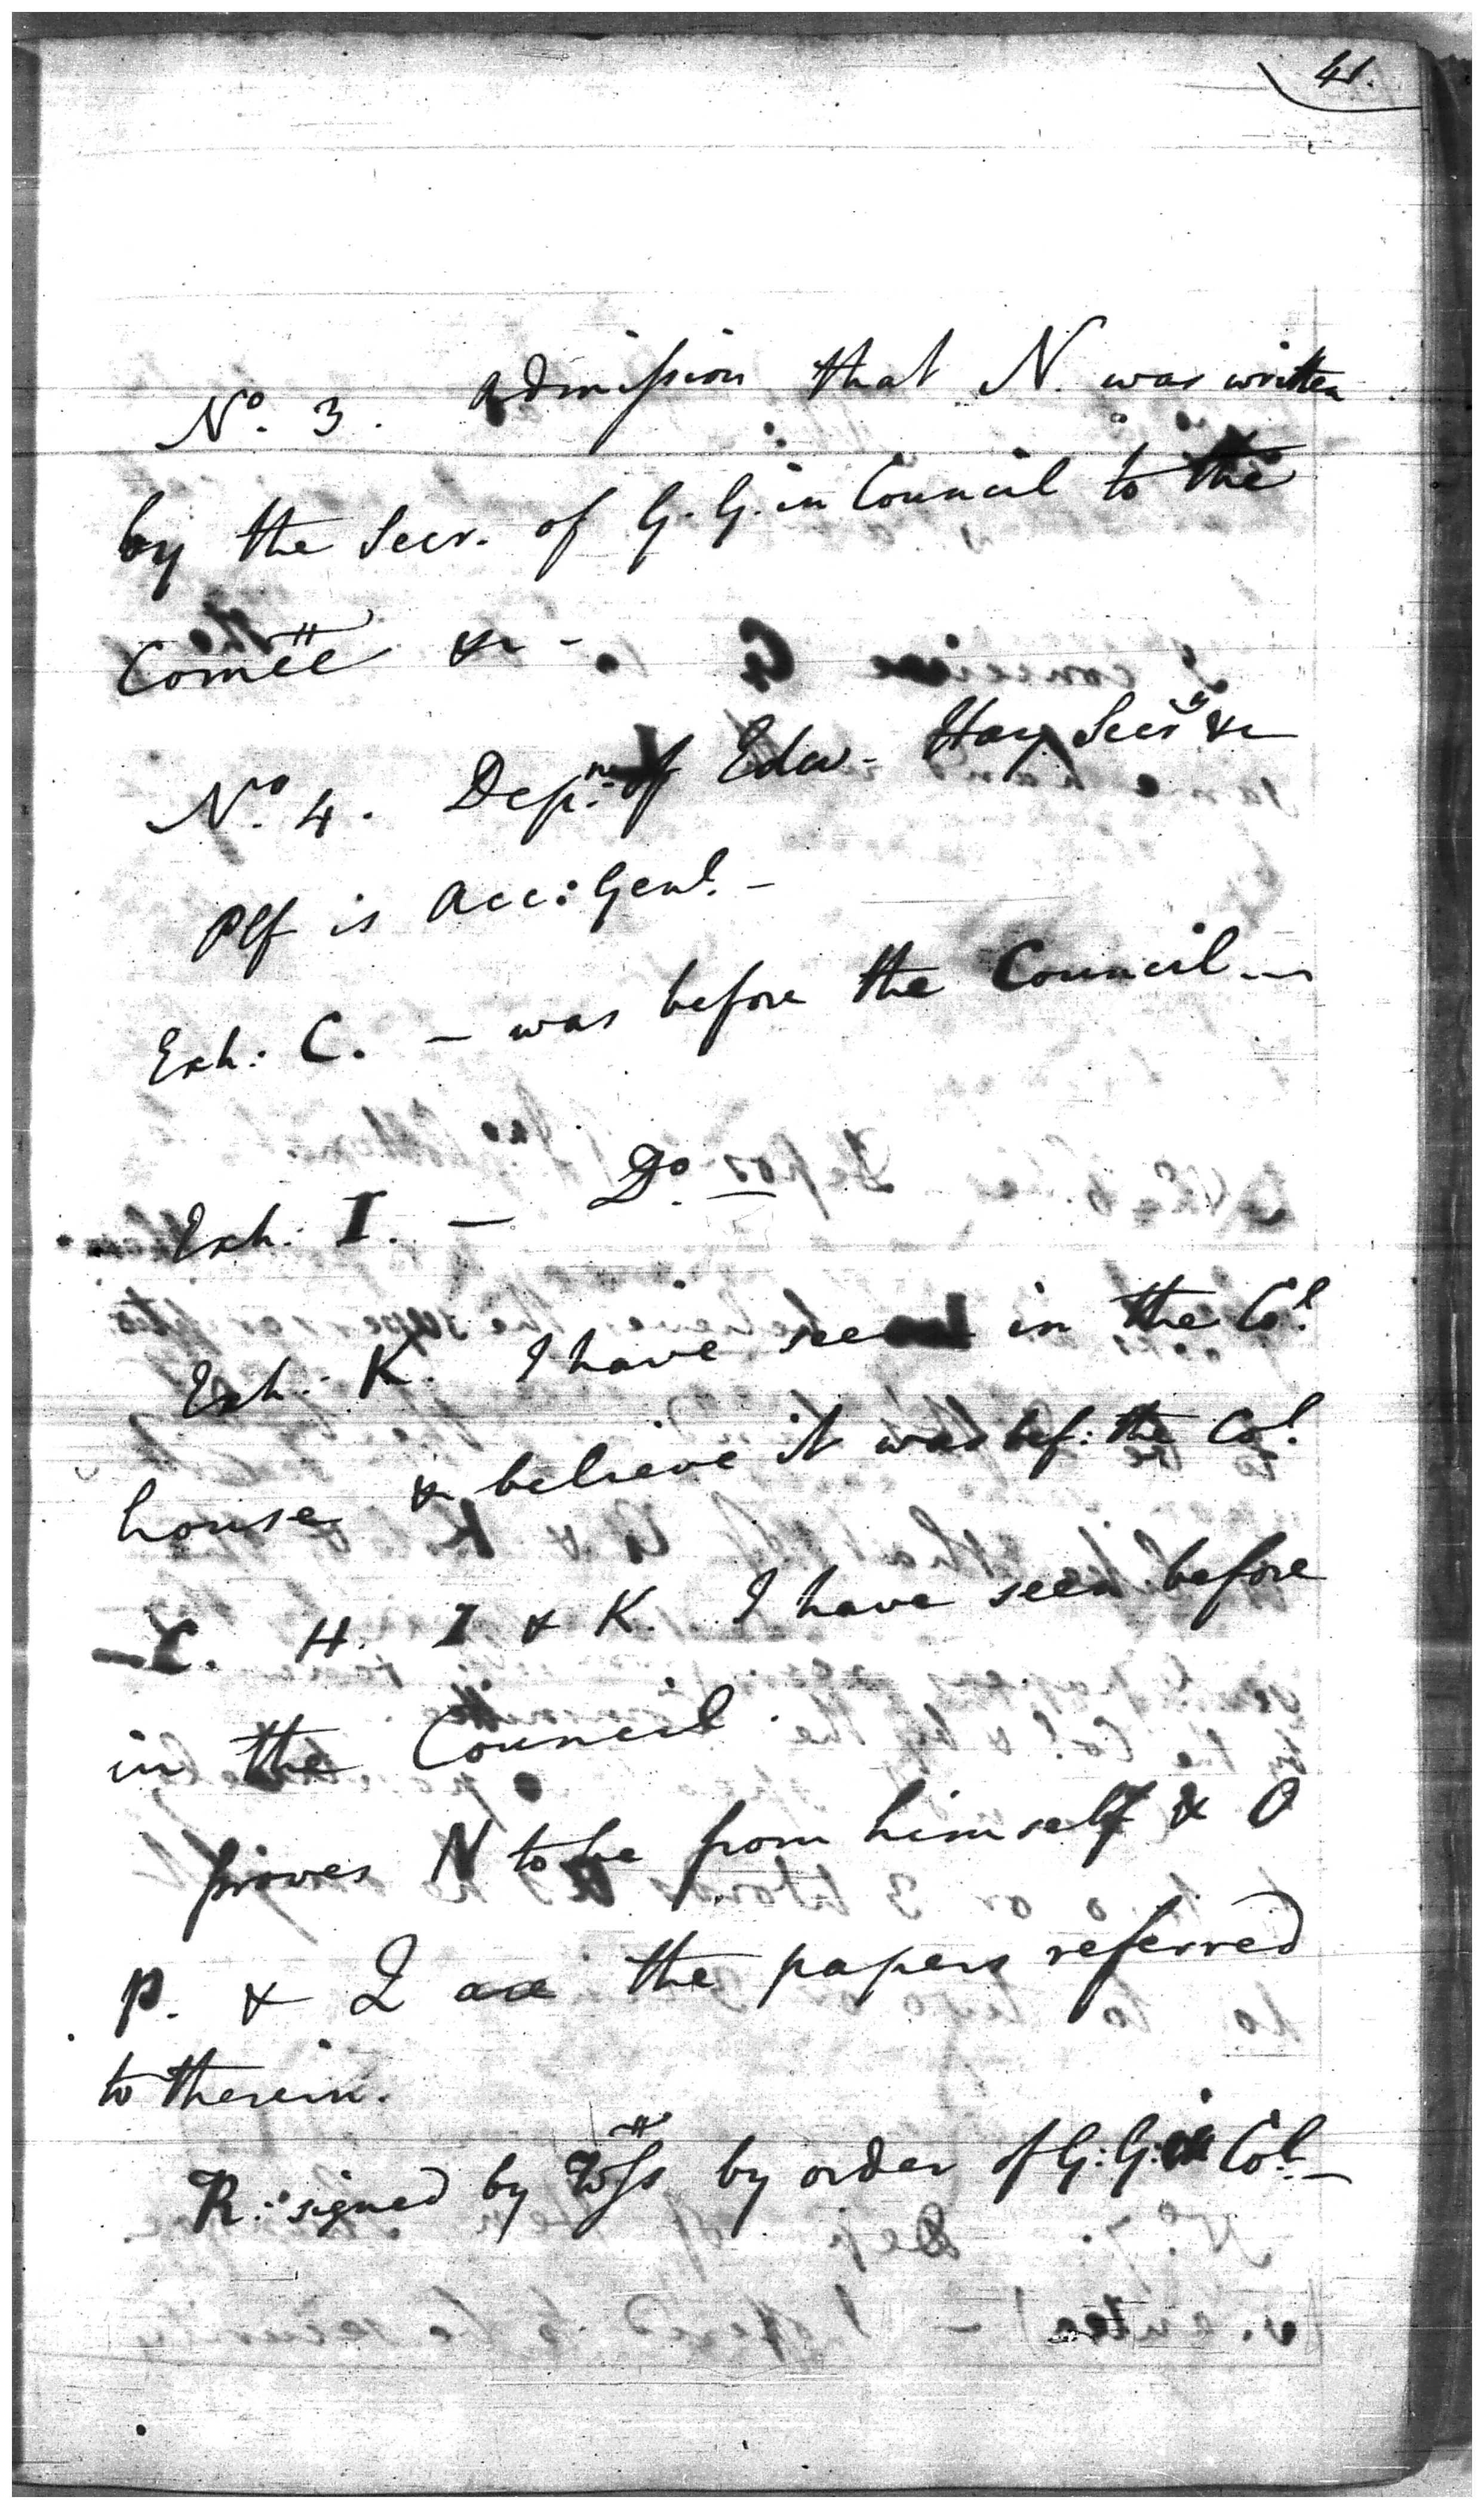 41.
No. 3. Admission that N. was written
by the Secr. of G. G. in Council to the
Comee &c -
No. 4. Depn. of Edw. Hay Secry &c
Plf is Acc: Genl. -
Exh: C. - was before the Council -
Exh: I. - Do. -
Exh: K. I have seen in the Col.
house & believe it was bef: the Col.
C. H. I & K. I have seen before
in the Council.
proves N to be from himself & O
P. & Q are the papers referred
to therein.
R: signed by Wss by order of G: G: in Col. -